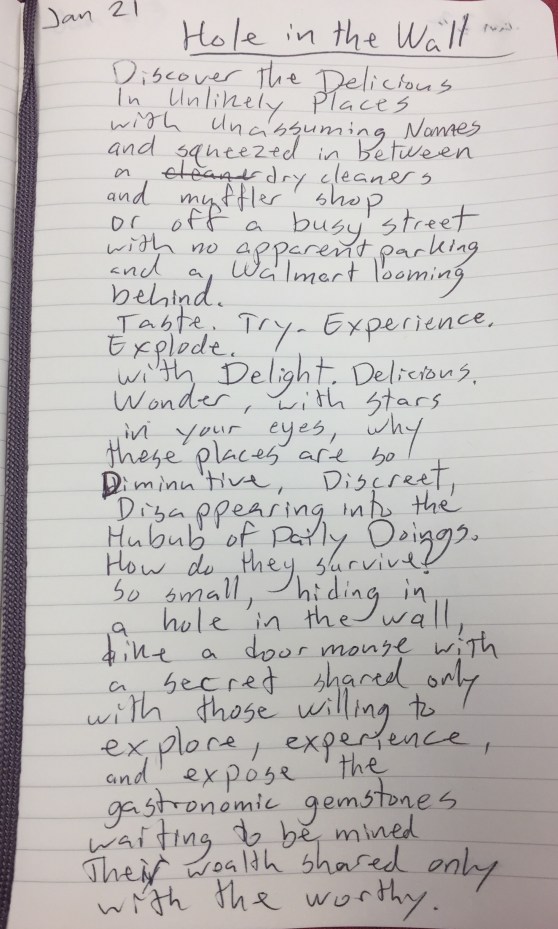 Jan 21
Hole in the Wall
Discover the Delicious
In Unlikely Places
with Unassuming Names
and squeezed in between
a cleaner dry cleaners
and myffler shop
or off a busy street
with no apparent parking
and a Walmart looming
behind.
Taste. Try. Experience.
Explode.
with Delight. Delicious.
Wonder, with stars
in your eyes, why
these places are so
Diminutive, Discreet,
Disappearing into the
Hubub of Daily Doings.
How do they survive?
So small, hiding in
a hole in the wall,
like a door mouse with
a secret shared only
with those willing to
explore, experience,
and expose the
gastronomic gemstones
waiting to be mined
Their wealth shared only
with the worthy.